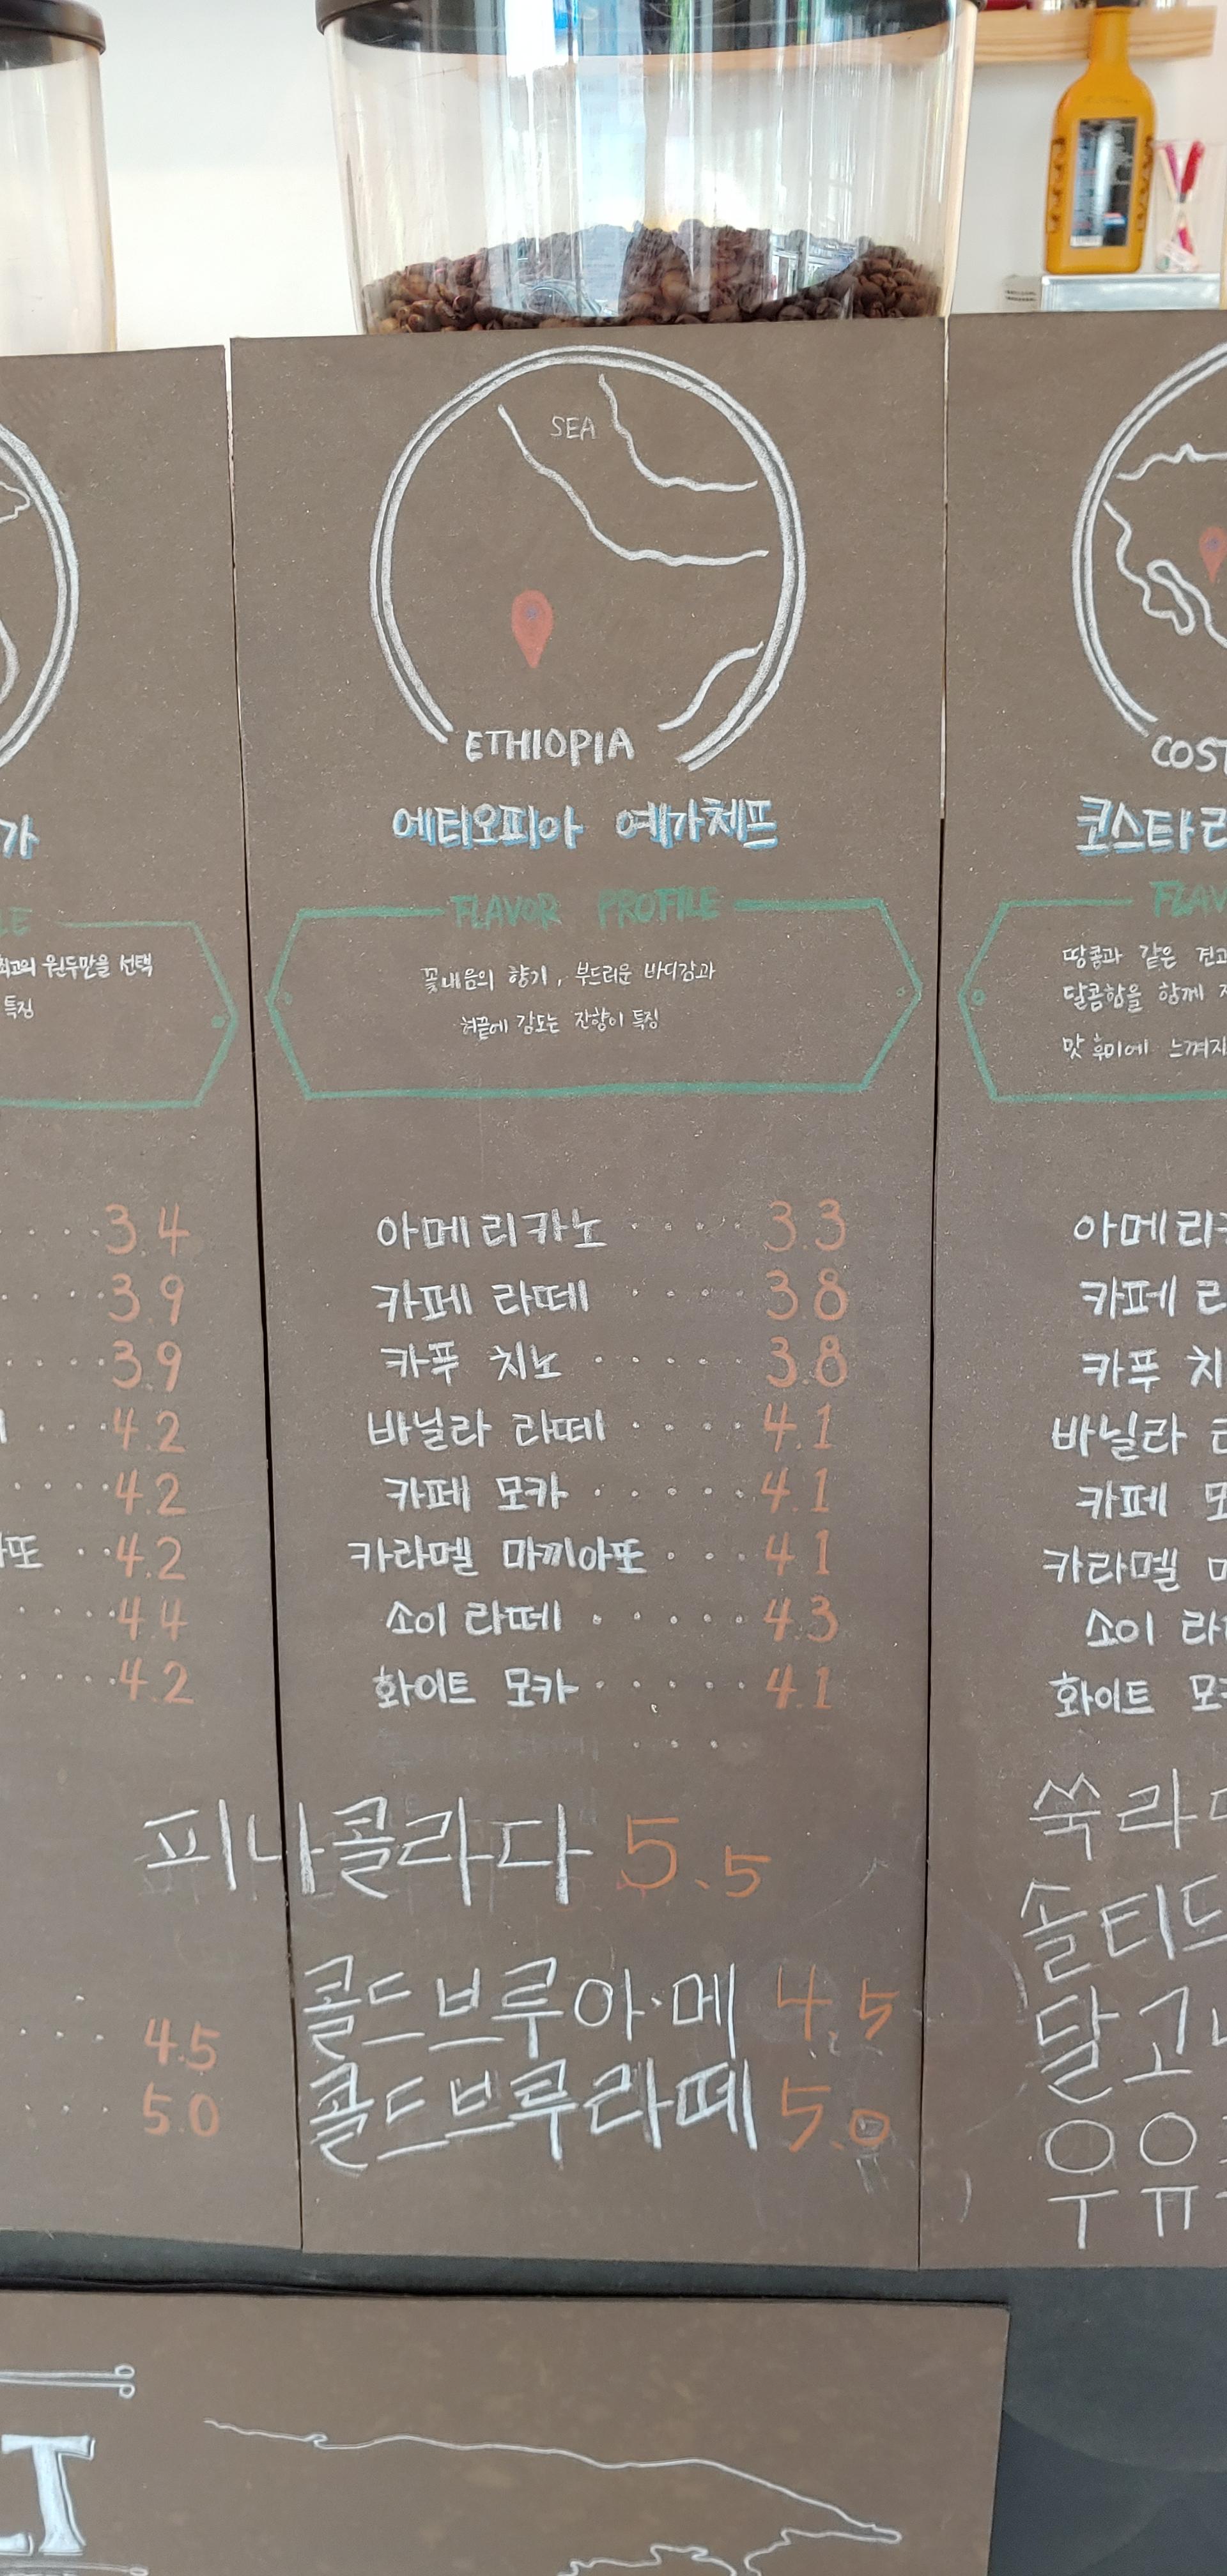 SEA
ETHIOPIA
에티오피아 예가체프
FLAVOR PROFILE
꽃내음의 향기, 부드러운 바디감과
혀끝에 감도는 잔향이 특징
아메리카노 3.3
카페 라떼 3.8
카푸 치노 3.8
바닐라 라떼 4.1
카페 모카 4.1
카라멜 마끼아또 4.1
소이 라떼 4.3
화이트 모카 4.1
피나콜라다 5.5
콜드브루아·메 4.5
콜드브루라떼 5.0
가
LE
최고의 원두만을 선택
특징
3.4
3.9
3.9
4.2
4.2
또 4.2
4.4
4.2
4.5
5.0
COST
코스타리
FLAV
땅콩과 같은 견고
달콤함을 함께
맛 후미에 느껴지
아메리카
카페 라
카푸 치
바닐라 라
카페 모
카라멜 마
소이 라떼
화이트 모카
쑥라떼
솔티드
달고나
우유
LT